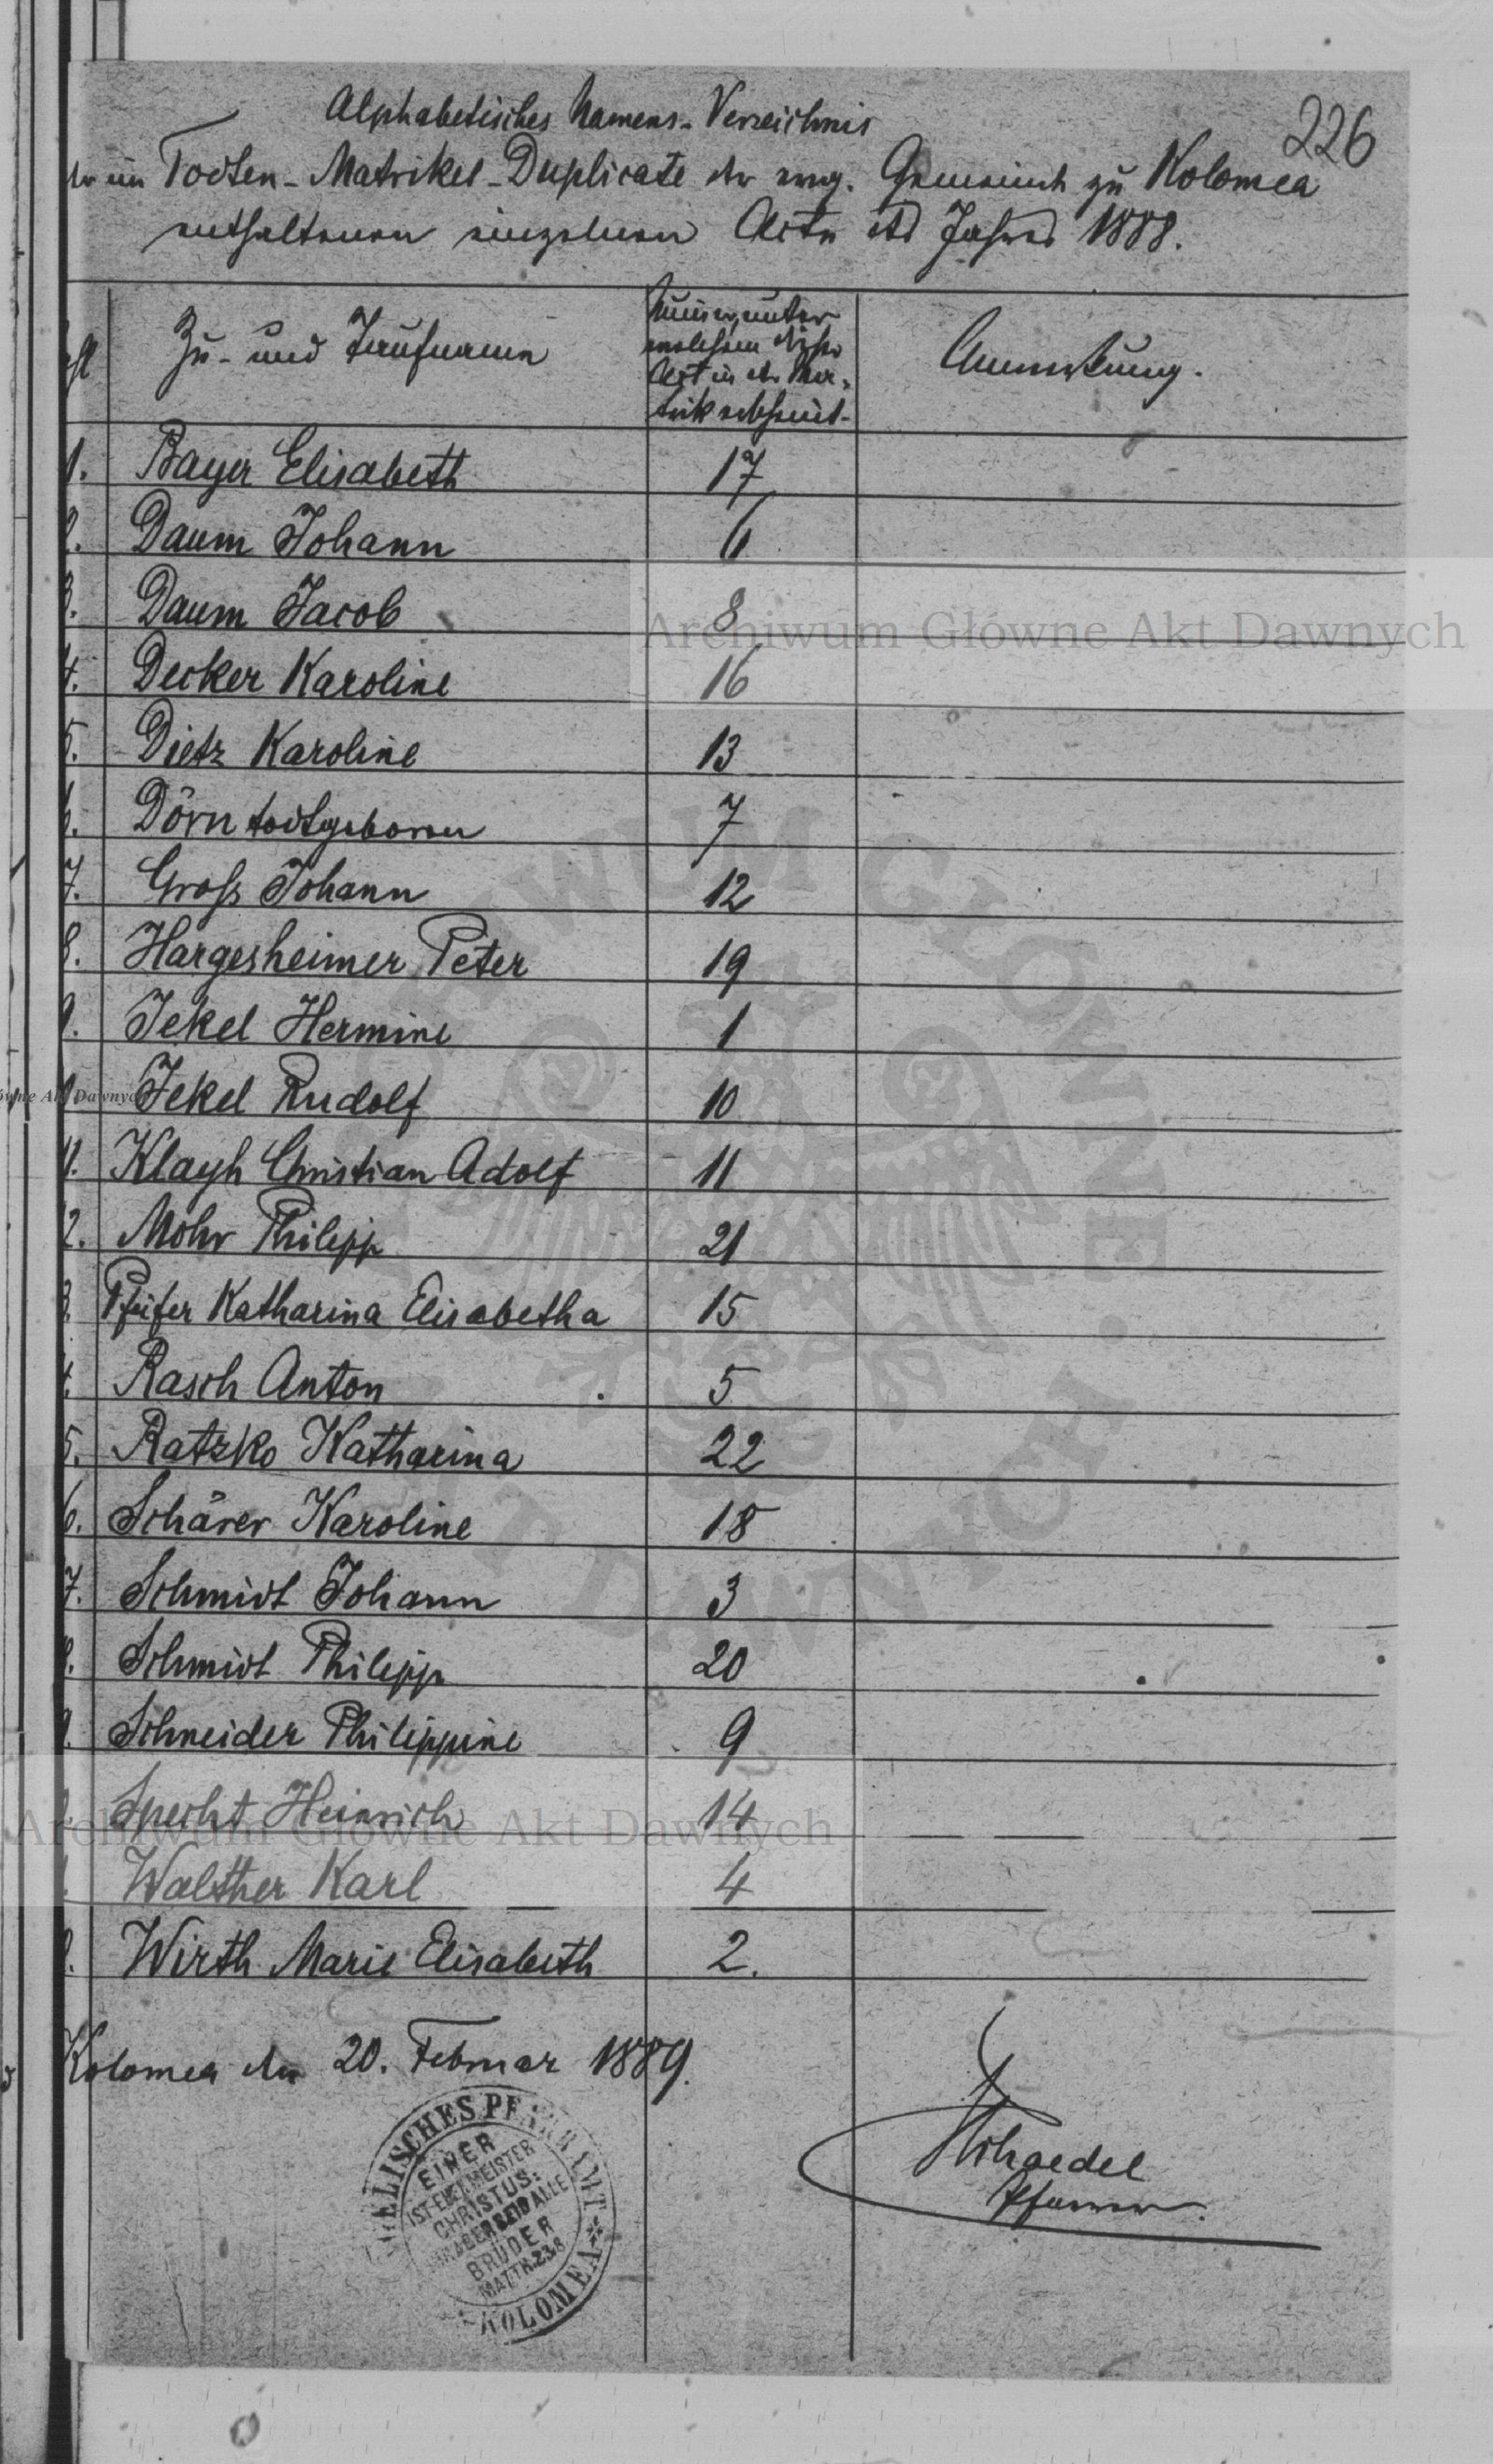 Alphabetisches Namens-Verzeichnis
226
der im Todten-Matrikel-Duplicate der evng. Gemeinde zu Kolomea
enthaltenen einzelnen Acte des Jahres 1888.
Zu- und Taufname
unter
welchem dieser
Act in der Ma-
trik erscheint.
Anmerkung.
1. Bayer Elisabeth 17
2. Daum Johann 6
3. Daum Jacob 8
4. Decker Karoline 16
5. Dietz Karoline 13
6. Dörn todtgeboren 7
7. Groß Johann 12
8. Hargesheimer Peter 19
9. Jekel Hermine 1
Jekel Rudolf 10
11. Klayh Christian Adolf 11
2. Mohr Philipp 21
3. Pfeifer Katharina Elisabetha 15
4. Rasch Anton 5
5. Ratzko Katharina 22
6. Schärer Karoline 18
7. Schmidt Johann 3
8. Schmidt Philipp 20
9. Schneider Philippine 9
Specht Heinrich 14
Walther Karl 4
Wirth Marie Elisabeth 2.
Kolomea den 20. Februar 1889.
Schaedel
Pfarrer.
ELISCHES PFARRAMT * KOLOMEA *
EINER
IST EUER MEISTER
CHRISTUS:
IHR ABER SEID ALLE
BRÜDER
MATTH. 23.8
Archiwum Główne Akt Dawnych
Archiwum Główne Akt Dawnych
ówne Akt Dawnych
ARCHIWUM GŁÓWNE AKT DAWNYCH